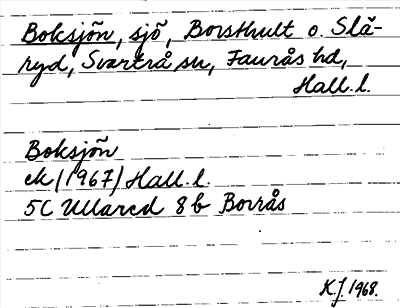 Boksjön, sjö, Borsthult o. Slä-
ryd, Svartrå sn, Faurås hd,
Hall. l.
Boksjön
ek/(1967)/Hall. l.
5C Ullared 8b Borrås
K.J. 1968.